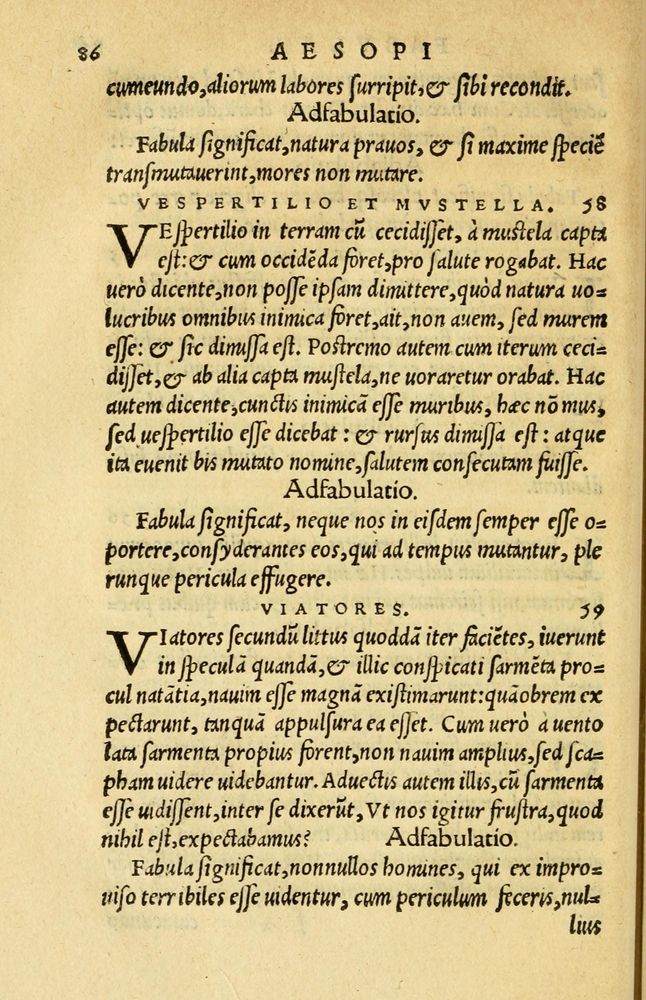 86 AESOPI
cumeundo, aliorum labores surripit, & sibi recondit.
Adfabulatio.
Fabula significat, natura prauos, & si maxime speciē
transmutauerint, mores non mutare.
VESPERTILIO ET MVSTELLA. 58
VEspertilio in terram cū cecidisset, à mustela capta
est: & cum occidēda foret, pro salute rogabat. Hac
uerò dicente, non posse ipsam dimittere, quòd natura uo=
lucribus omnibus inimica foret, ait, non auem, sed murem
esse: & sic dimissa est. Postremo autem cum iterum ceci=
disset, & ab alia capta mustela, ne uoraretur orabat. Hac
autem dicente, cunctis inimicā esse muribus, hæc nō mus,
sed uespertilio esse dicebat: & rursus dimissa est: atque
ita euenit bis mutato nomine, salutem consecutam fuisse.
Adfabulatio.
Fabula significat, neque nos in eisdem semper esse o=
portere, consyderantes eos, qui ad tempus mutantur, ple
runque pericula effugere.
VIATORES. 59
VIatores secundū littus quoddā iter faciētes, iuerunt
in speculā quandā, & illic conspicati sarmēta pro=
cul natātia, nauim esse magnā existimarunt: quāobrem ex
pectarunt, tanquā appulsura ea esset. Cum uerò à uento
lata sarmenta propius forent, non nauim amplius, sed sca=
pham uidere uidebantur. Aduectis autem illis, cū sarmenta
esse uidissent, inter se dixerūt, Vt nos igitur frustra, quod
nihil est, expectabamus? Adfabulatio.
Fabula significat, nonnullos homines, qui ex impro=
uiso terribiles esse uidentur, cum periculum feceris, nul=
lius